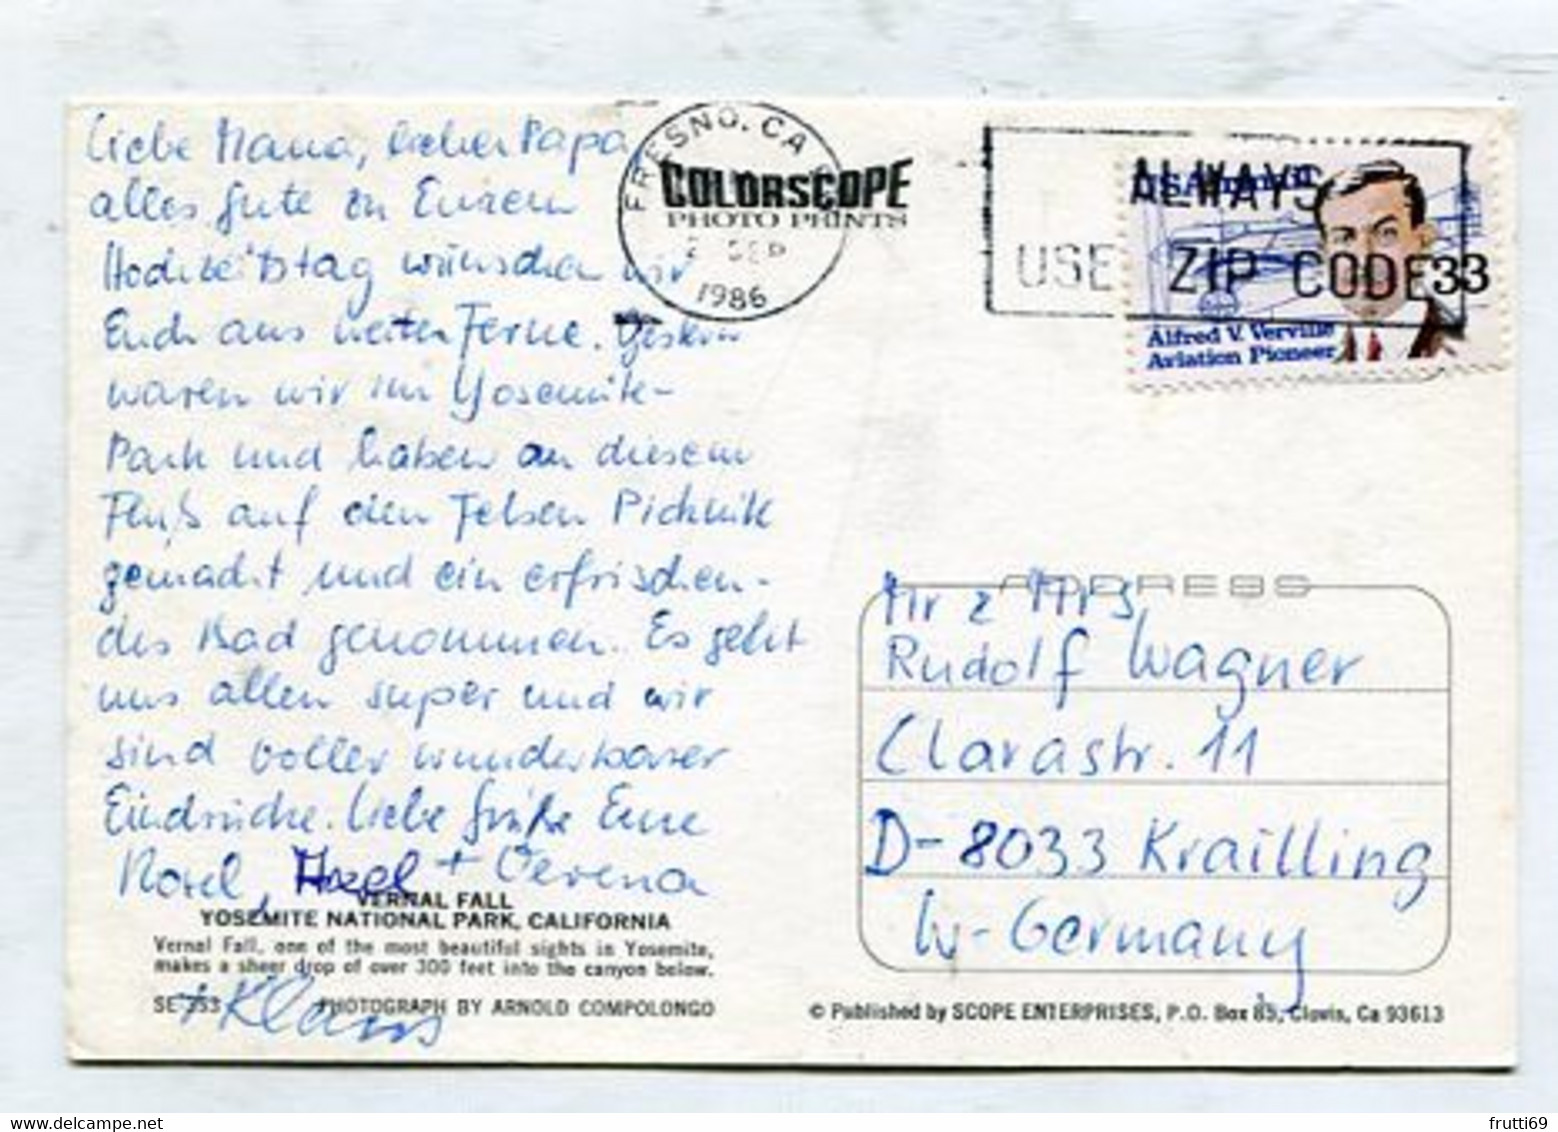 Liebe Mama, lieber Papa,
alles Gute zu Eurem
Hochzeitstag wünschen wir
Euch aus weiter Ferne. Gestern
waren wir im Yosemite-
Park und haben an diesem
Fluß auf den Felsen Picknik
gemacht und ein erfrischen-
des Bad genommen. Es geht
uns allen super und wir
sind voller wunderbarer
Eindrücke. Liebe Grüße Eure
+ Verena
+ Klaus
VERNAL FALL
YOSEMITE NATIONAL PARK, CALIFORNIA
Vernal Fall, one of the most beautiful sights in Yosemite,
makes a sheer drop of over 300 feet into the canyon below.
SE 353 PHOTOGRAPH BY ARNOLD COMPOLONGO
FRESNO, CA
SEP
1986
COLORSCOPE
PHOTO PRINTS
ALWAYS
USE ZIP CODE
USAirmail
33
Alfred V. Verville
Aviation Pioneer
ADDRESS
Mr & Mrs
Rudolf Wagner
Clarastr. 11
D-8033 Krailling
W-Germany
© Published by SCOPE ENTERPRISES, P.O. Box 85, Clovis, Ca 93613
frutti69